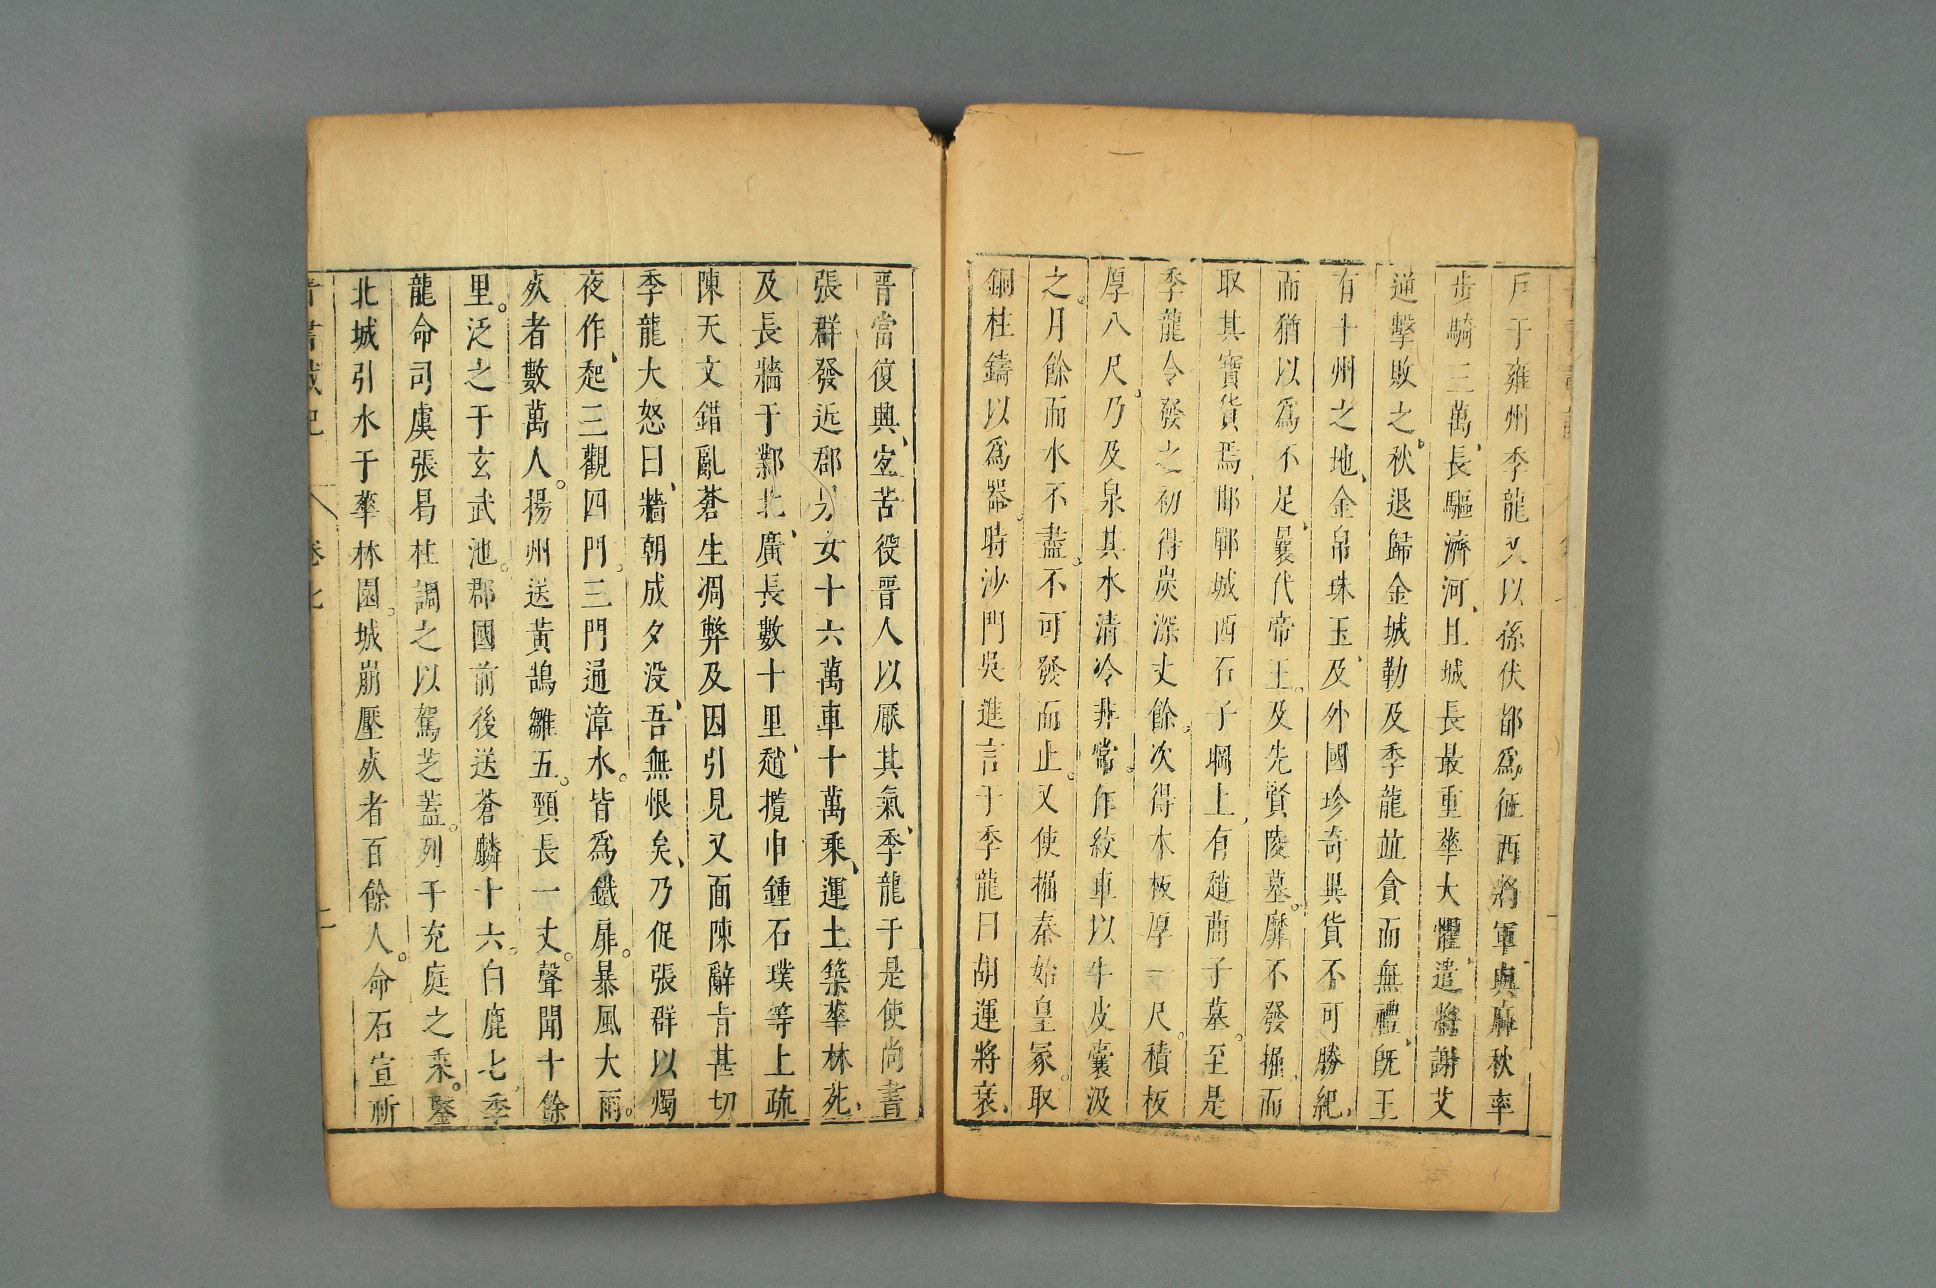 戶于雍州季龍又以孫伏都爲征西將軍與麻秋率
步騎三萬長驅濟河且城長最重華大懼遣將謝艾
逆擊敗之秋退歸金城勒及季龍並貪而無禮旣王
有十州之地金帛珠玉及外國珍奇異貨不可勝紀
而猶以爲不足曩代帝王及先賢陵墓靡不發掘而
取其寶貨焉邯鄲城西石子堈上有趙簡子墓至是
季龍令發之初得炭深丈餘次得木板厚一尺積板
厚八尺乃及泉其水清冷非常作絞車以牛皮囊汲
之月餘而水不盡不可發而止又使掘秦始皇冢取
銅柱鑄以爲器時沙門吳進言于季龍曰胡運將衰
晉當復興宜苦役晉人以厭其氣季龍于是使尚書
張群發近郡男女十六萬車十萬乘運土築華林苑
及長牆于鄴北廣長數十里趙攬申鍾石璞等上疏
陳天文錯亂蒼生凋弊及因引見又面陳辭旨甚切
季龍大怒曰牆朝成夕没吾無恨矣乃促張群以燭
夜作起三觀四門三門通漳水皆爲鐵扉暴風大雨
死者數萬人揚州送黃鵠雛五頸長一丈聲聞十餘
里泛之于玄武池郡國前後送蒼麟十六白鹿七季
龍命司虞張曷柱調之以駕芝蓋列于充庭之乘鑿
北城引水于華林園城崩壓死者百餘人命石宣祈
晉書載記 卷七 二